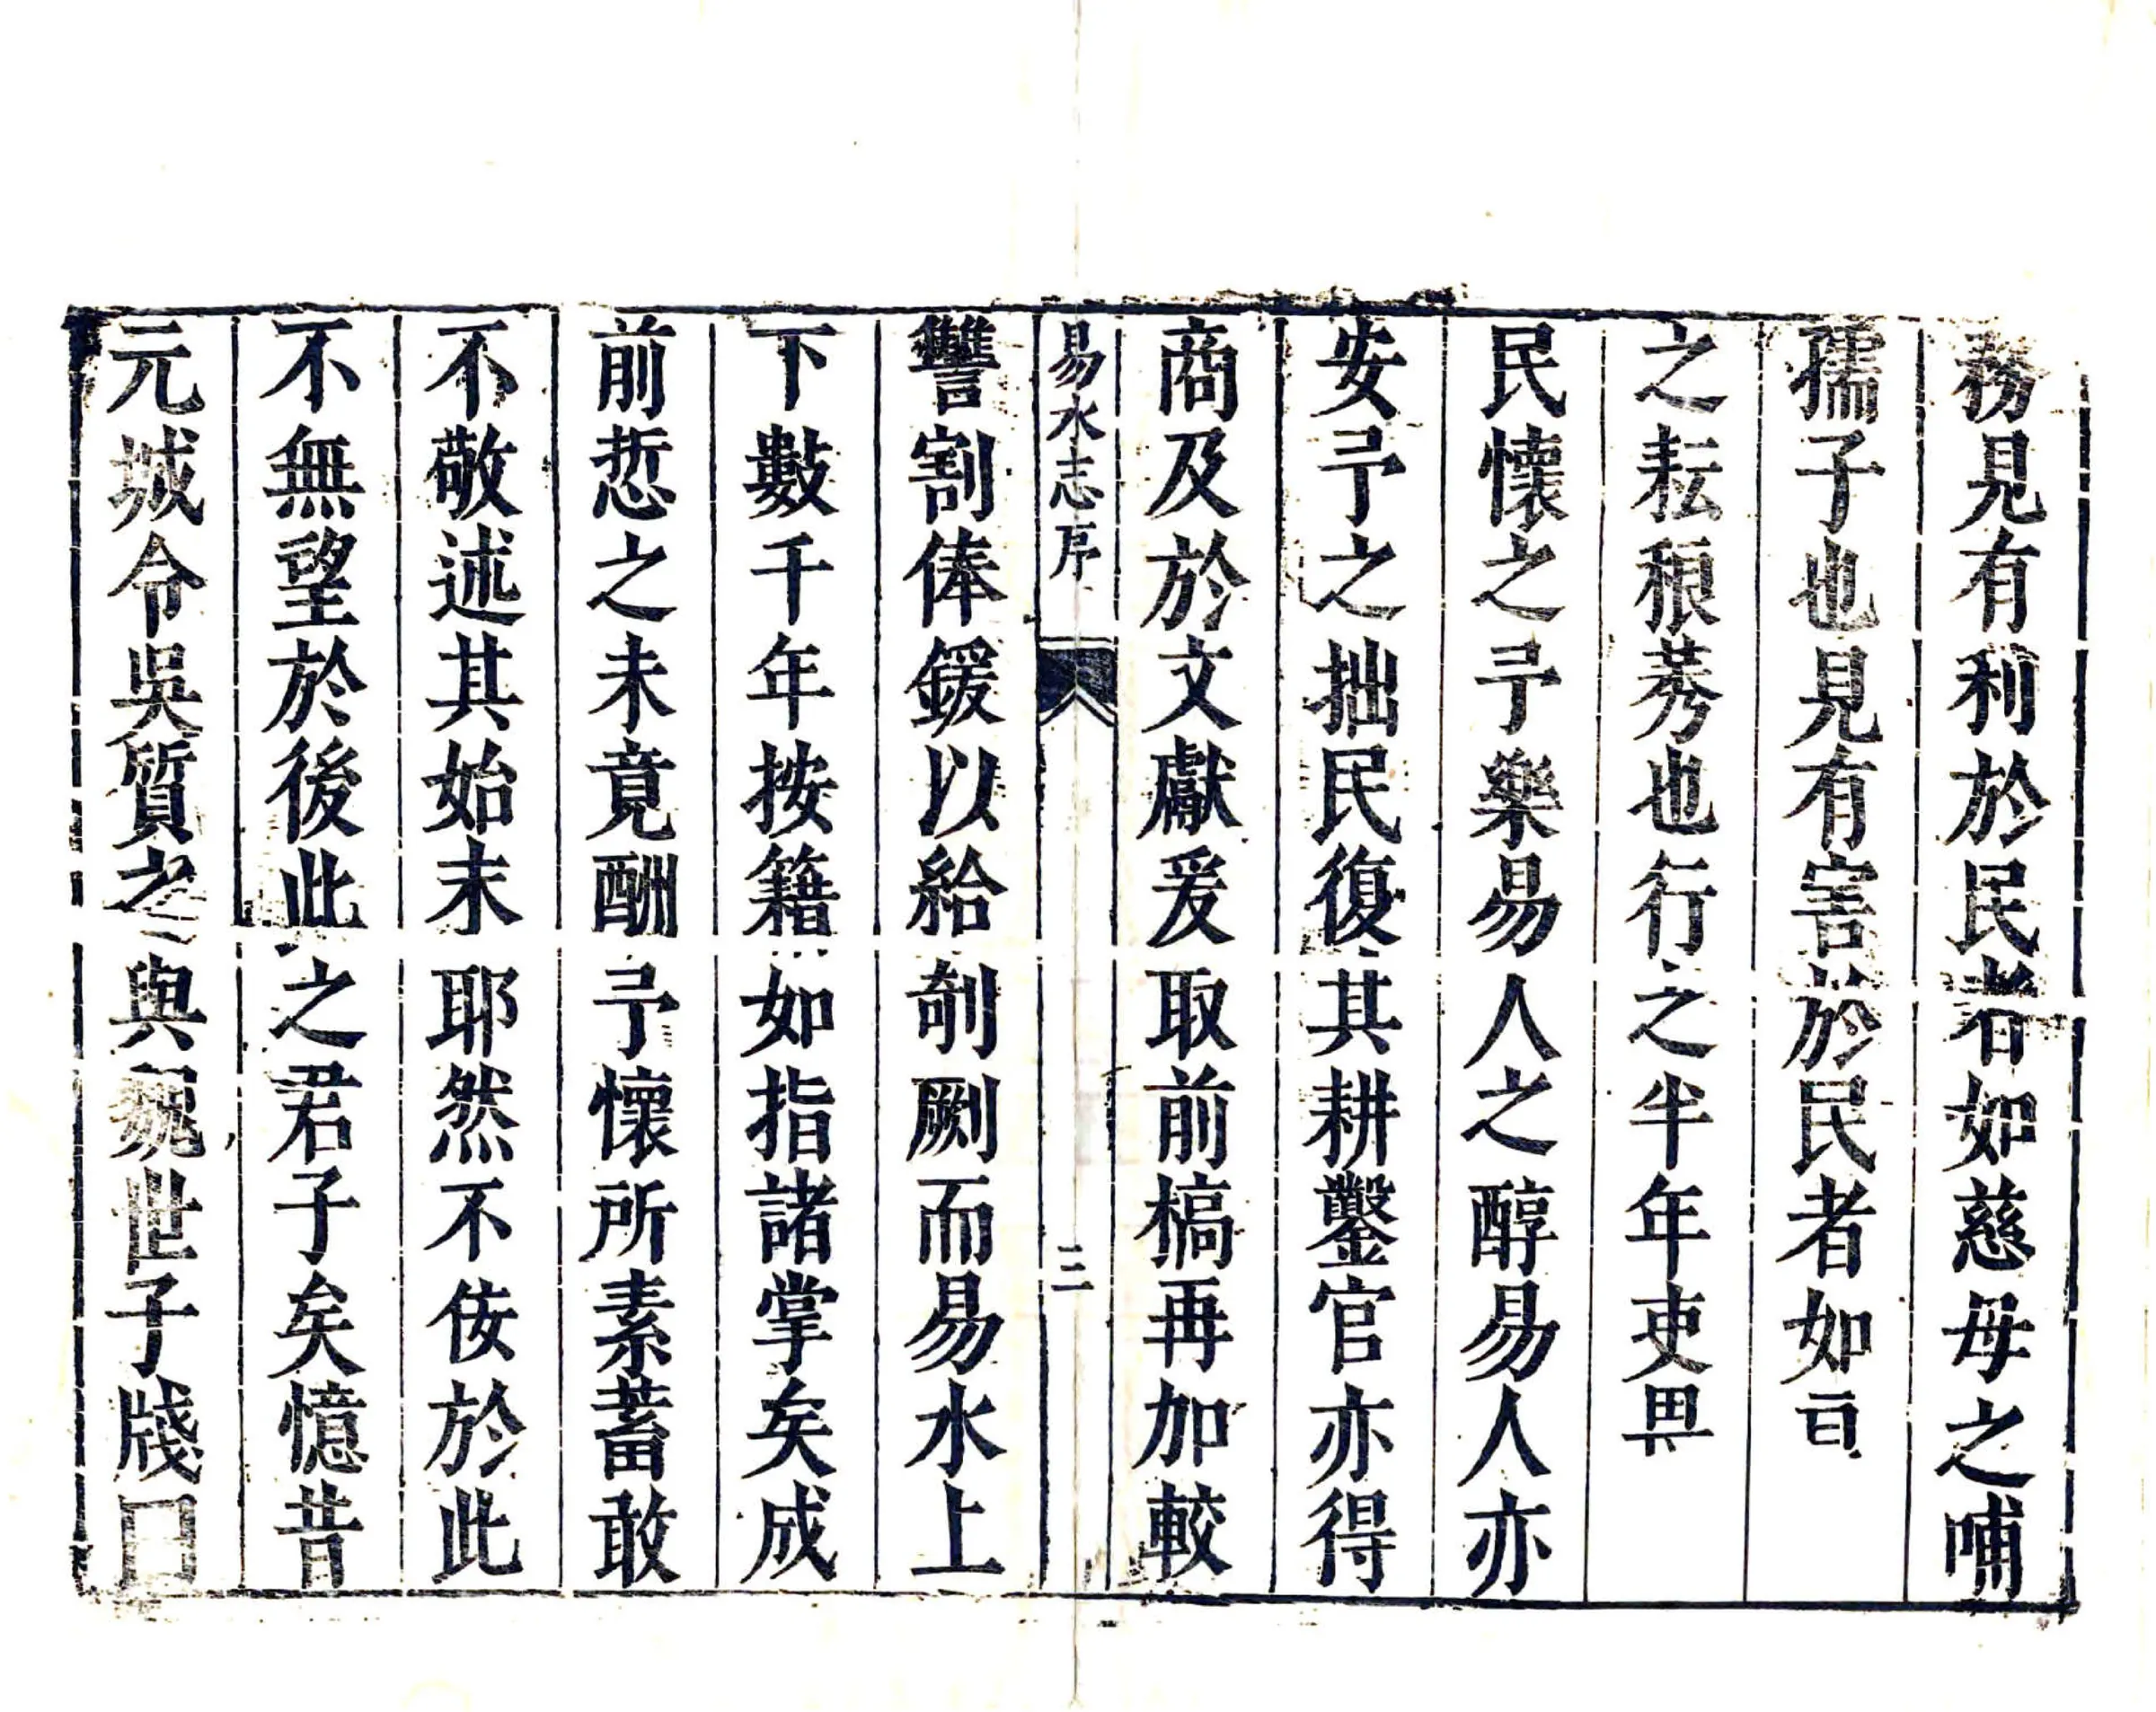 務見有利於民者如慈母之哺
孺子也見有害於民者如
之耘稂莠也行之半年吏畏
民懷之予樂易人之醇易人亦
安予之拙民復其耕鑿官亦得
商及於文獻爰取前槁再加較
易水志序
三
讐割俸鍰以給剞劂而易水上
下數千年按籍如指諸掌矣成
前悊之未竟酬予懷所素蓄敢
不敬述其始末耶然不佞於此
不無望於後此之君子矣憶昔
元城令吳質之與魏世子牋曰